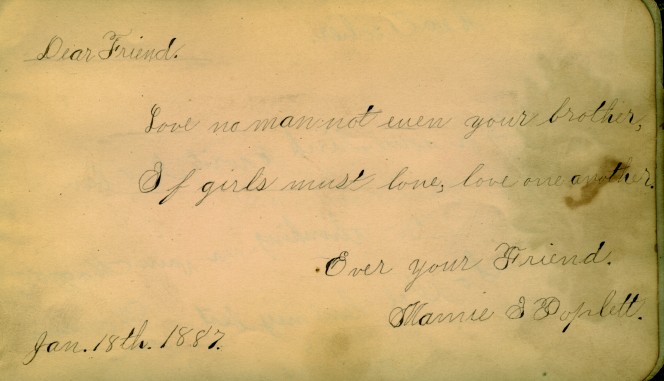 Dear Friend.
Love no man not even your brother,
If girls must love, love one another.
Ever your Friend.
Mamie S Poplett.
Jan. 18th. 1887.